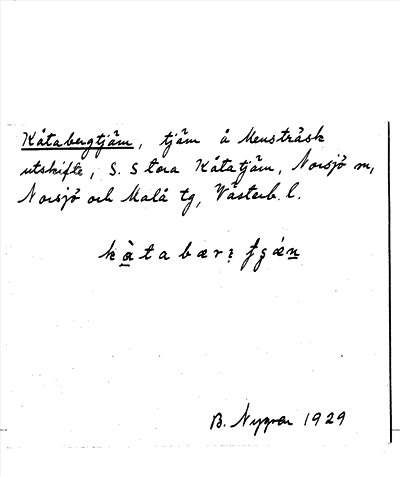 Kåtabergtjärn, tjärn å Mensträsk
utskifte, S. Stora Kåtatjärn, Norsjö sn,
Norsjö och Malå tg, Västerb. l.
B. Nygren 1929